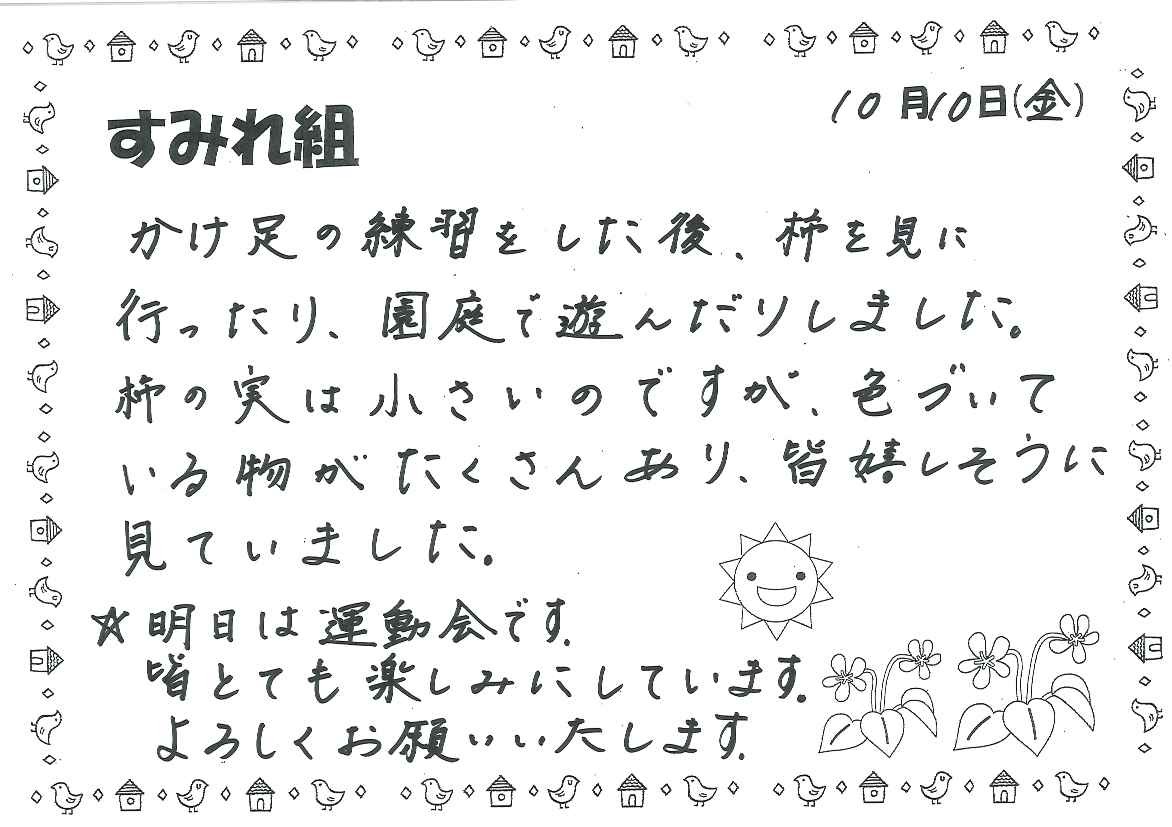 10月10日(金)
すみれ組
かけ足の練習をした後、柿を見に
行ったり、園庭で遊んだりしました。
柿の実は小さいのですが、色づいて
いる物がたくさんあり、皆嬉しそうに
見ていました。
☆明日は運動会です。
皆とても楽しみにしています。
よろしくお願いいたします。